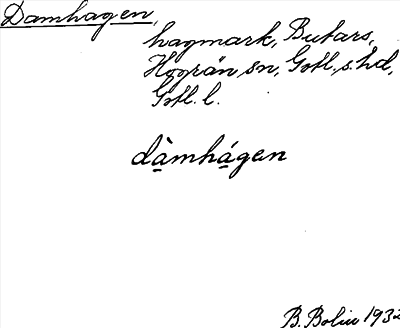 Damhagen,
hagmark, Butars,
Hogrän sn, Gotl. s. hd,
Gotl. l.
dàmhágen
B. Bolin 1932